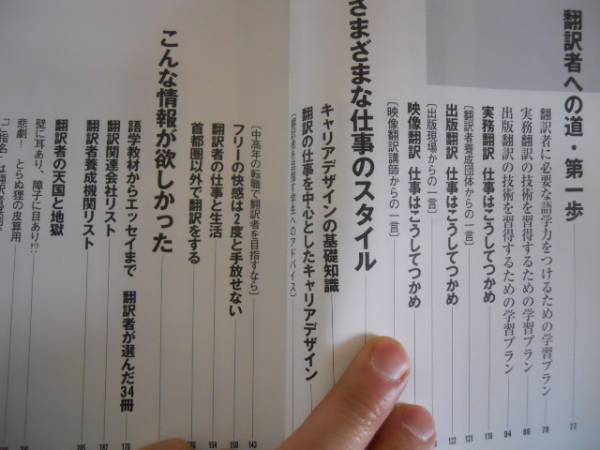 翻訳者への道・第一歩
翻訳者に必要な語学力をつけるための学習プラン 77
実務翻訳の技術を習得するための学習プラン 78
出版翻訳の技術を習得するための学習プラン 86
実務翻訳 仕事はこうしてつかめ 94
[翻訳者養成団体からの一言] 119
出版翻訳 仕事はこうしてつかめ 121
[出版現場からの一言] 122
映像翻訳 仕事はこうしてつかめ
[映像翻訳講師からの一言]
さまざまな仕事のスタイル
キャリアデザインの基礎知識
翻訳の仕事を中心としたキャリアデザイン
[翻訳者を目指す学生へのアドバイス]
[中高年の転職で翻訳者を目指すなら] 143
フリーの快感は2度と手放せない 150
翻訳者の仕事と生活 154
首都圏以外で翻訳をする
こんな情報が欲しかった
語学教材からエッセイまで 翻訳者が選んだ34冊 178
翻訳関連会社リスト 187
翻訳者養成機関リスト 195
翻訳者の天国と地獄
壁に耳あり、障子に目あり!?
悲劇! とらぬ狸の皮算用